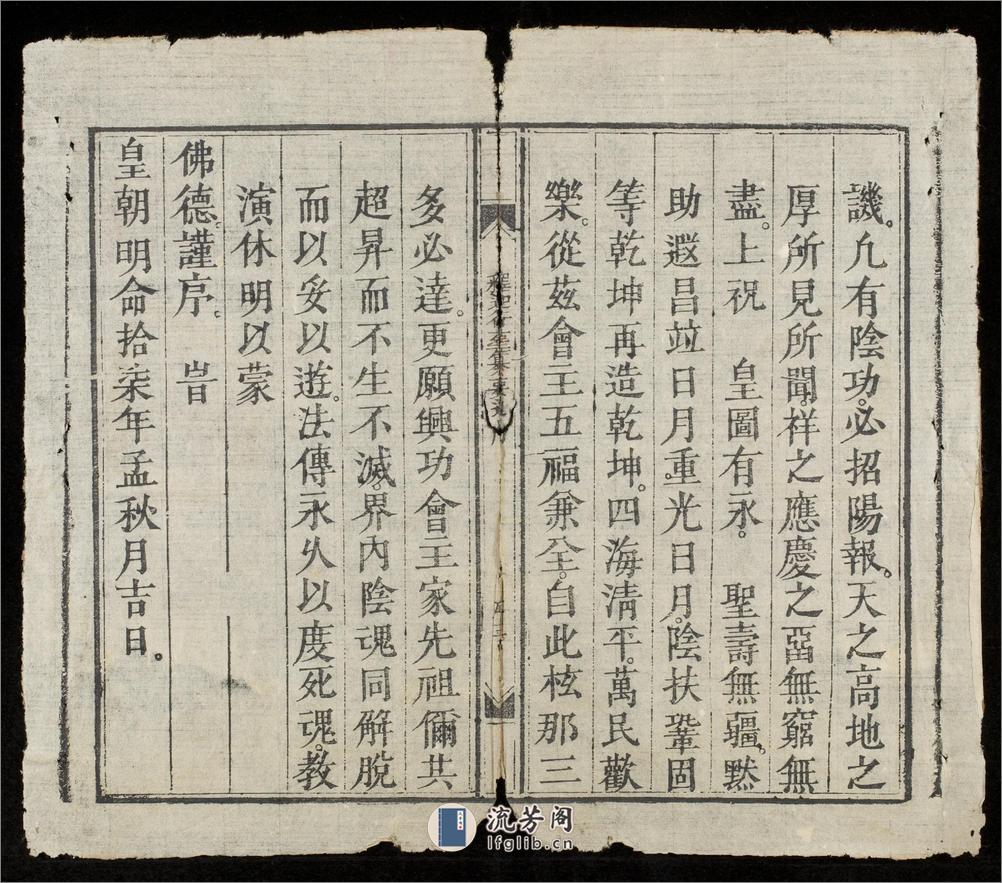 譏。凢有陰功。必招陽報。天之高地之
厚所見所聞。祥之應慶之𤯝無窮無
盡。上祝　皇圖有永。　聖壽無疆。黙
助遐昌竝日月重光日月。陰扶鞏固
等乾坤再造乾坤。四海清平。萬民歡
樂。從茲會主五福兼全。自此核那三
多必達。更願興功會主家先祖儞共
超昇而不生不滅。界內陰魂同解脫
而以妥以遊。法傳永久以度死魂。教
演休明以蒙
佛德。謹序。　旹
皇朝明命拾柒年孟秋月吉日。
流芳阁
lfglib.cn